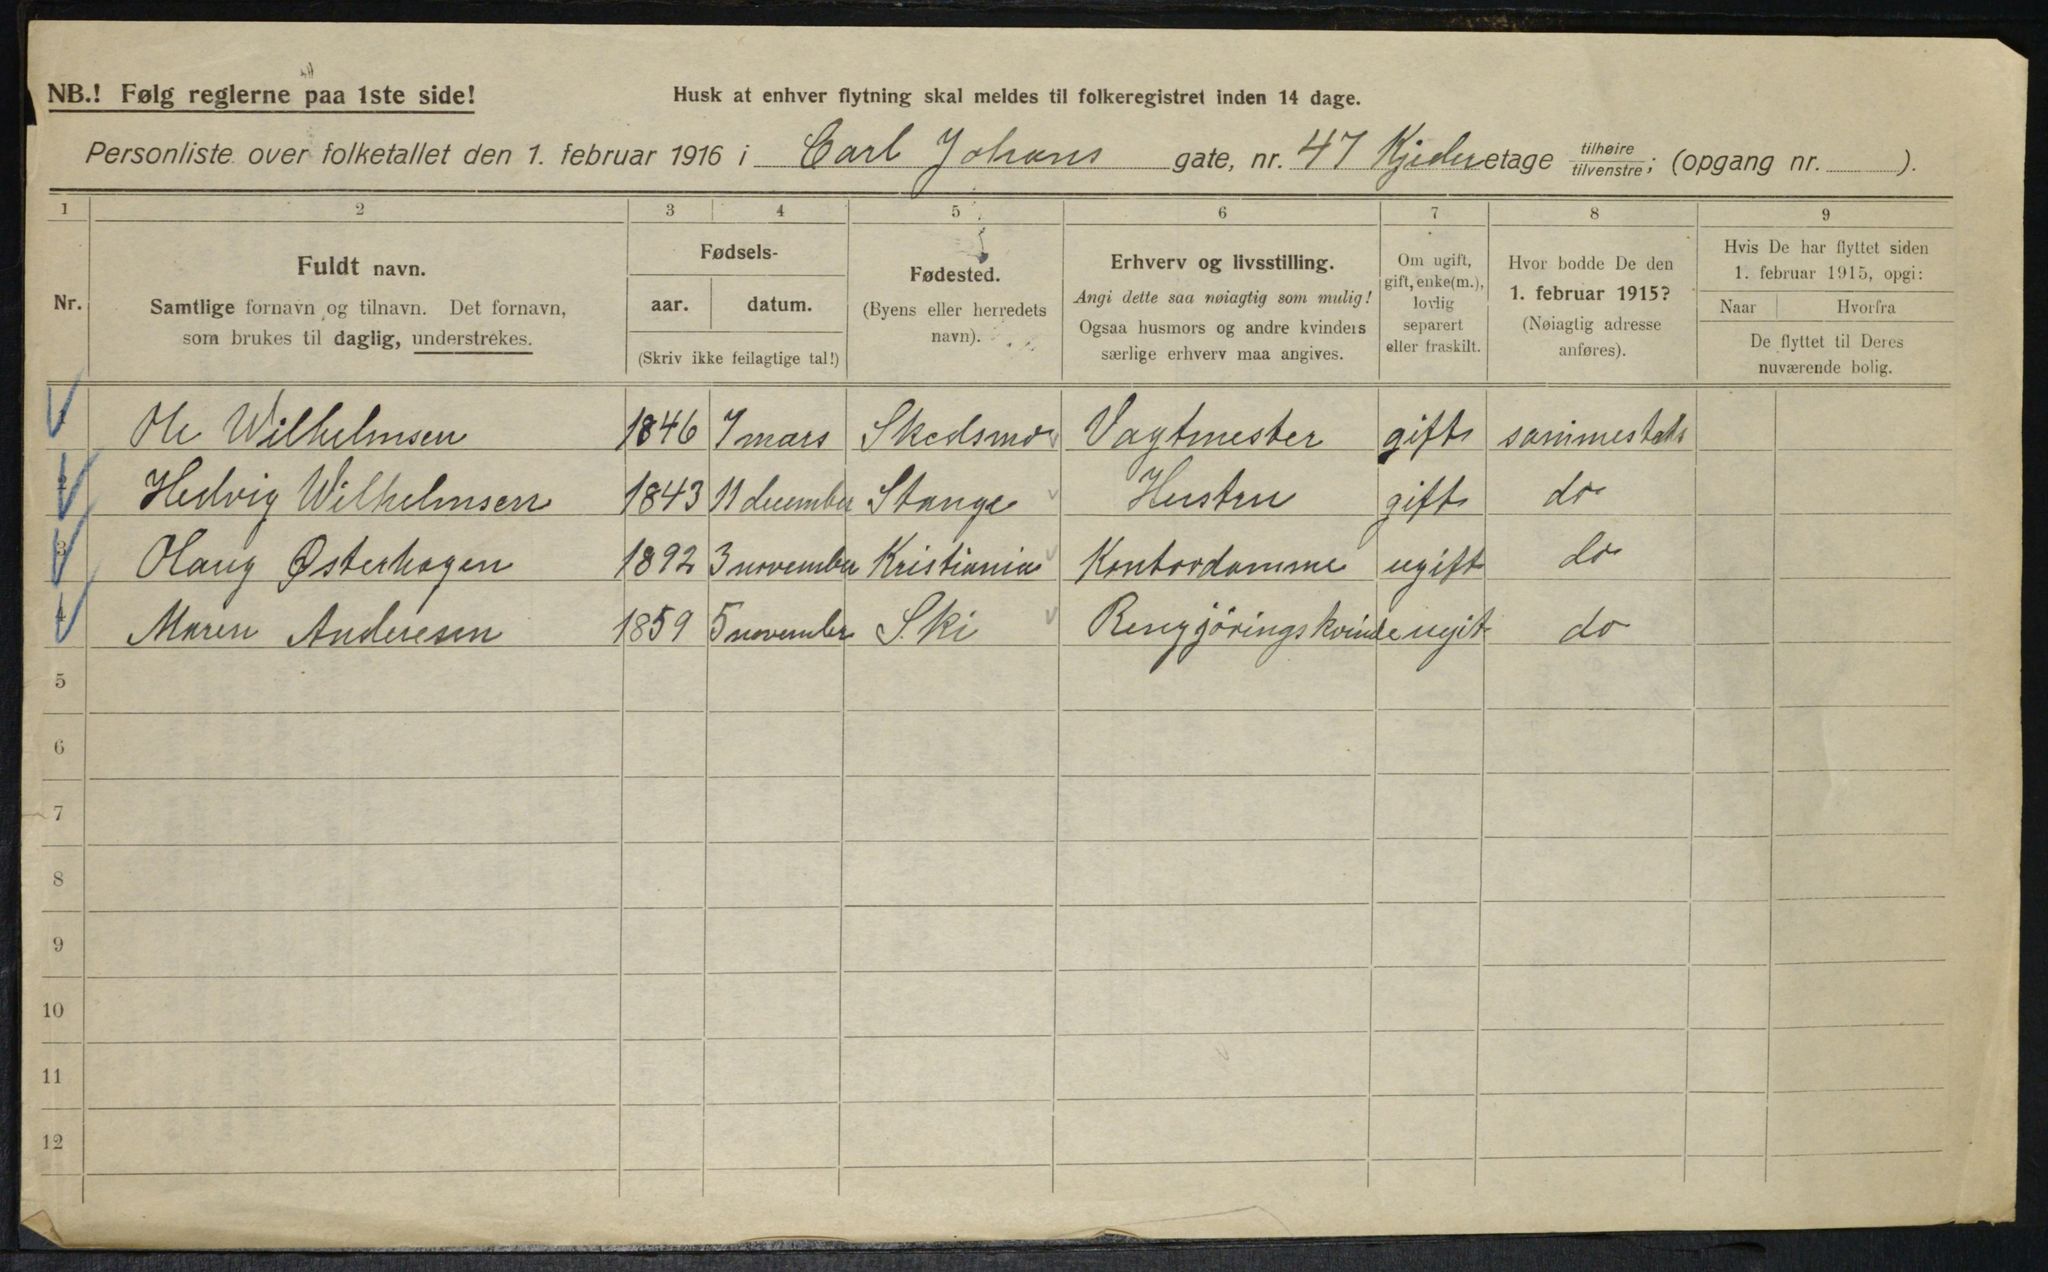 NB.! Følg reglerne paa 1ste side!
Husk at enhver flytning skal meldes til folkeregistret inden 14 dage.
Personliste over folketallet den 1. februar 1916 i Carl Johans gate, nr. 47 Kjelder etage tilhøire/tilvenstre; (opgang nr. ).
1 2 3 4 5 6 7 8 9
Nr.
Fuldt navn.
Samtlige fornavn og tilnavn. Det fornavn,
som brukes til daglig, understrekes.
Fødsels-
aar. datum.
(Skriv ikke feilagtige tal!)
Fødested.
(Byens eller herredets
navn).
Erhverv og livsstilling.
Angi dette saa nøiagtig som mulig!
Ogsaa husmors og andre kvinders
særlige erhverv maa angives.
Om ugift,
gift, enke(m.),
lovlig
separert
eller fraskilt.
Hvor bodde De den
1. februar 1915?
(Nøiagtig adresse
anføres).
Hvis De har flyttet siden
1. februar 1915, opgi:
Naar Hvorfra
De flyttet til Deres
nuværende bolig.
1 Ole Wilhelmsen 1846 7 mars Skedsmo Vagtmester gift sammesteds
2 Hedvig Wilhelmsen 1843 11 december Stange Hustru gift do
3 Østerhagen 1892 3 november Kristiania Kontordamme ugift do
4 Maren Andersen 1859 5 november Ski Rengjöringskvinde ugift do
5
6
7
8
9
10
11
12